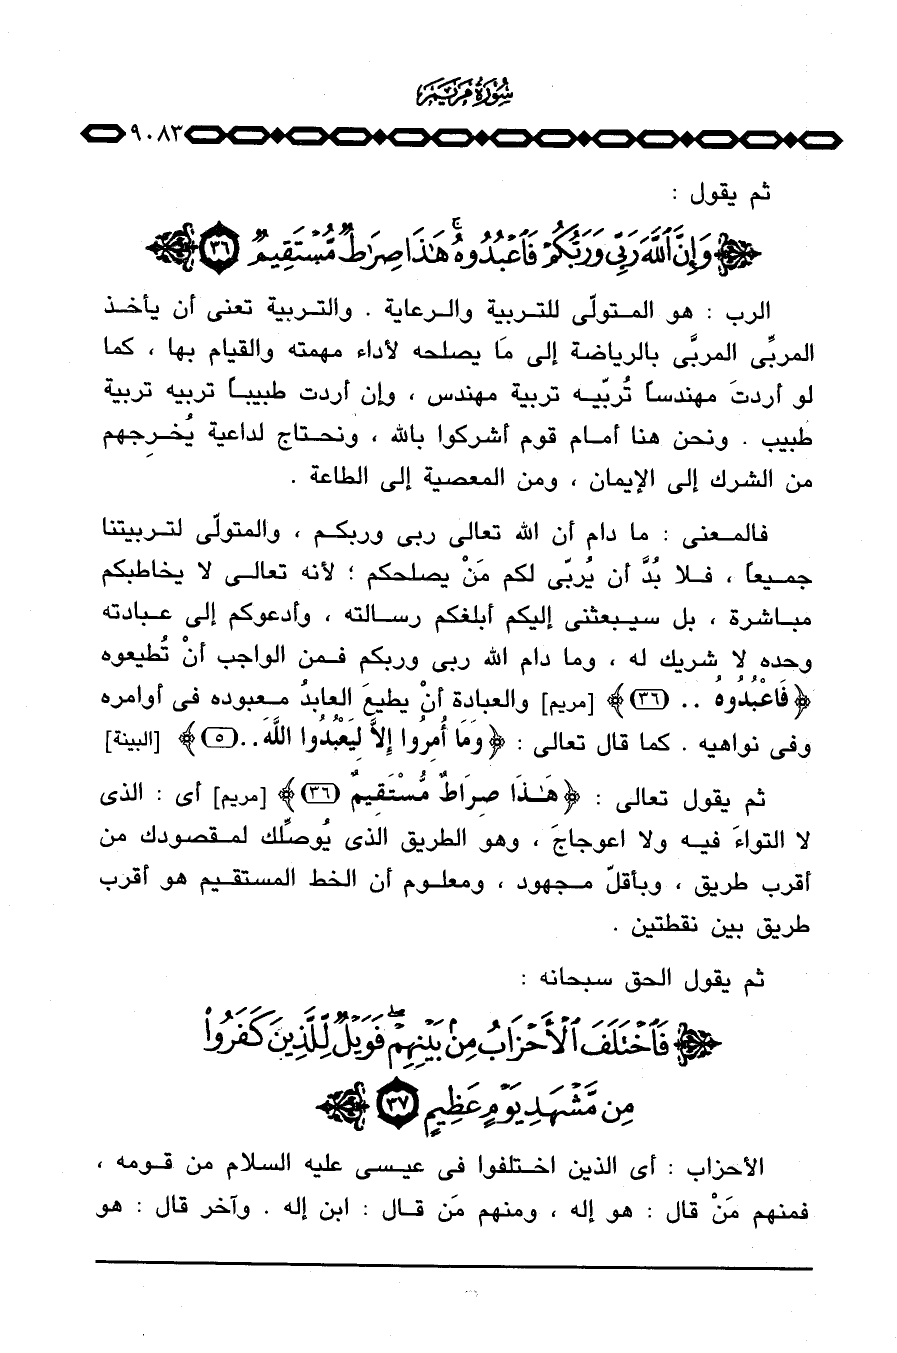 سُورَةُ مَرْيَمَ
٩٠٨٣
ثم يقول :
﴿ وَإِنَّ ٱللَّهَ رَبِّى وَرَبُّكُمْ فَٱعْبُدُوهُ هَٰذَا صِرَٰطٌ مُّسْتَقِيمٌ ٣٦ ﴾
الرب : هو المتولِّى للتربية والرعاية . والتربية تعنى أن يأخذ
المربِّى المربَّى بالرياضة إلى مَا يصلحه لأداء مهمته والقيام بها ، كما
لو أردتَ مهندساً تُربّيه تربية مهندس ، وإن أردت طبيباً تربيه تربية
طبيب . ونحن هنا أمام قوم أشركوا بالله ، ونحتاج لداعية يُخرِجهم
من الشرك إلى الإيمان ، ومن المعصية إلى الطاعة .
فالمعنى : ما دام أن الله تعالى ربى وربكم ، والمتولِّى لتربيتنا
جميعاً ، فلا بُدَّ أن يُربِّى لكم مَنْ يصلحكم ؛ لأنه تعالى لا يخاطبكم
مباشرة ، بل سيبعثنى إليكم أبلغكم رسالته ، وأدعوكم إلى عبادته
وحده لا شريك له ، وما دام الله ربى وربكم فمن الواجب أنْ تُطيعوه
﴿ فَاعْبُدُوهُ .. (٣٦) ﴾ [مريم] والعبادة أنْ يطيعَ العابدُ معبوده فى أوامره
وفى نواهيه . كما قال تعالى : ﴿ وَمَا أُمِرُوا إِلاَّ لِيَعْبُدُوا اللَّهَ .. (٥) ﴾ [البينة]
ثم يقول تعالى : ﴿ هَـٰذَا صِرَاطٌ مُّسْتَقِيمٌ (٣٦) ﴾ [مريم] أى : الذى
لا التواءَ فيه ولا اعوجاجَ ، وهو الطريق الذى يُوصِّلك لمقصودك من
أقرب طريق ، وبأقلّ مجهود ، ومعلوم أن الخط المستقيم هو أقرب
طريق بين نقطتين .
ثم يقول الحق سبحانه :
﴿ فَٱخْتَلَفَ ٱلْأَحْزَابُ مِنۢ بَيْنِهِمْ ۖ فَوَيْلٌ لِّلَّذِينَ كَفَرُوا۟
مِن مَّشْهَدِ يَوْمٍ عَظِيمٍ ٣٧ ﴾
الأحزاب : أى الذين اختلفوا فى عيسى عليه السلام من قومه ،
فمنهم مَنْ قال : هو إله ، ومنهم مَن قال : ابن إله . وآخر قال : هو